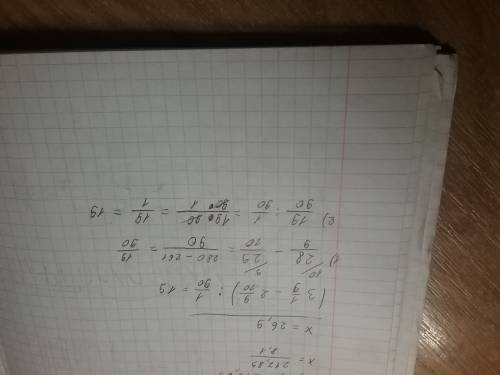 x = 217,89/8,1
x = 26,9
3 1/9 - 2 9/10) : 1/90 = 19
1) 28/9 10/ - 29/10 9/ = 280 - 261/90 = 19/90
2) 19/90 : 1/90 = 19 · 90/90 · 1 = 19/1 = 19